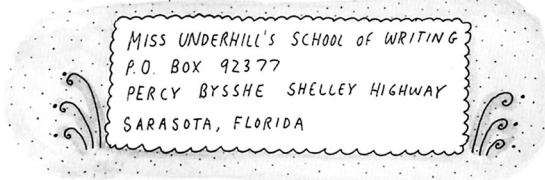 MISS UNDERHILL'S SCHOOL OF WRITING
P.O. BOX 92377
PERCY BYSSHE SHELLEY HIGHWAY
SARASOTA, FLORIDA